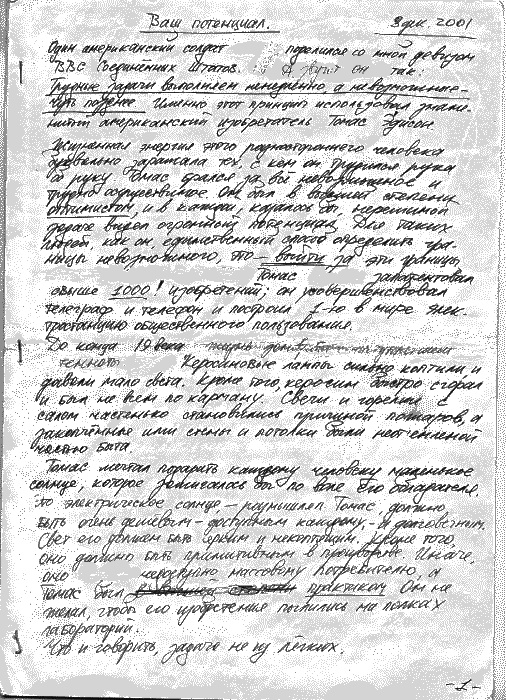 Ваш потенциал. 8 дек. 2001
Один американский солдат поделился со мной девизом
ВВС Соединённых Штатов. А звучит он так:
Трудные задачи выполняем немедленно, а невозможные –
чуть позднее. Именно этот принцип использовал знаме-
нитый американский изобретатель Томас Эдисон.
Жизненная энергия этого разностороннего человека
буквально заражала тех, с кем он трудился рука
об руку. Томас брался за всё невозможное и
трудно осуществимое. Он был в высшей степени
оптимистом, и в каждом, казалось бы, нерешимой
видел огромный потенциал. Для таких
людей, как он, единственный способ определить гра-
ницы невозможного, это – выйти за эти границы.
Томас запатентовал
свыше 1000! изобретений; он усовершенствовал
телеграф и телефон и построил 1-ю в мире элек-
тростанцию общественного пользования.
До конца 19 века
темно Керосиновые лампы сильно коптили и
давали мало света. Кроме того, керосин быстро сгорал
и был не всем по карману. Свечи и горелки с
салом частенько становились причиной пожаров, а
закопчённые или стены и потолки были неотъемлемой
частью быта.
Томас мечтал подарить каждому человеку маленькое
солнце, которое зажигалось бы по воле его обладателя
Это электрическое солнце, – размышлял Томас, должно
быть очень дешёвым – доступным каждому, – и долговечным.
Свет его должен быть ярким и некоптящим. Кроме того,
оно должно быть примитивным в производстве. Иначе,
оно массовому потребителю, а
Томас был практиком. Он не
желал, чтобы его изобретения пылились на полках
лабораторий.
Что и говорить, задача не из лёгких.
-1-